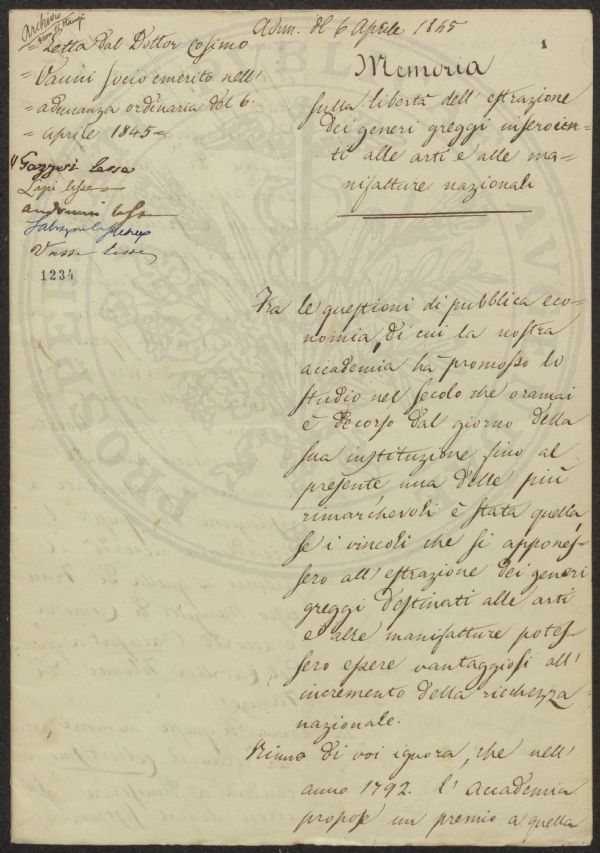 Adun. del 6 Aprile 1845
1
Archivio
Letta dal Dottor Cosimo
Vanni socio emerito nell'
adunanza ordinaria del 6.
aprile 1845
1234
Memoria
sulla libertà dell'estrazione
dei generi greggi inservien=
ti alle arti e alle ma=
nifatture nazionali
Fra le questioni di pubblica eco=
nomia, di cui la nostra
accademia ha promosso lo
studio nel secolo che oramai
è decorso dal giorno della
sua instituzione fino al
presente una delle più
rimarchevoli è stata quella,
se i vincoli che si appones=
sero all'estrazione dei generi
greggi destinati alle arti
e alle manifatture potes=
sero essere vantaggiosi all'
incremento della ricchezza
nazionale.
Niuno di voi ignora, che nell'
anno 1792. l'Accademia
propose un premio a quella